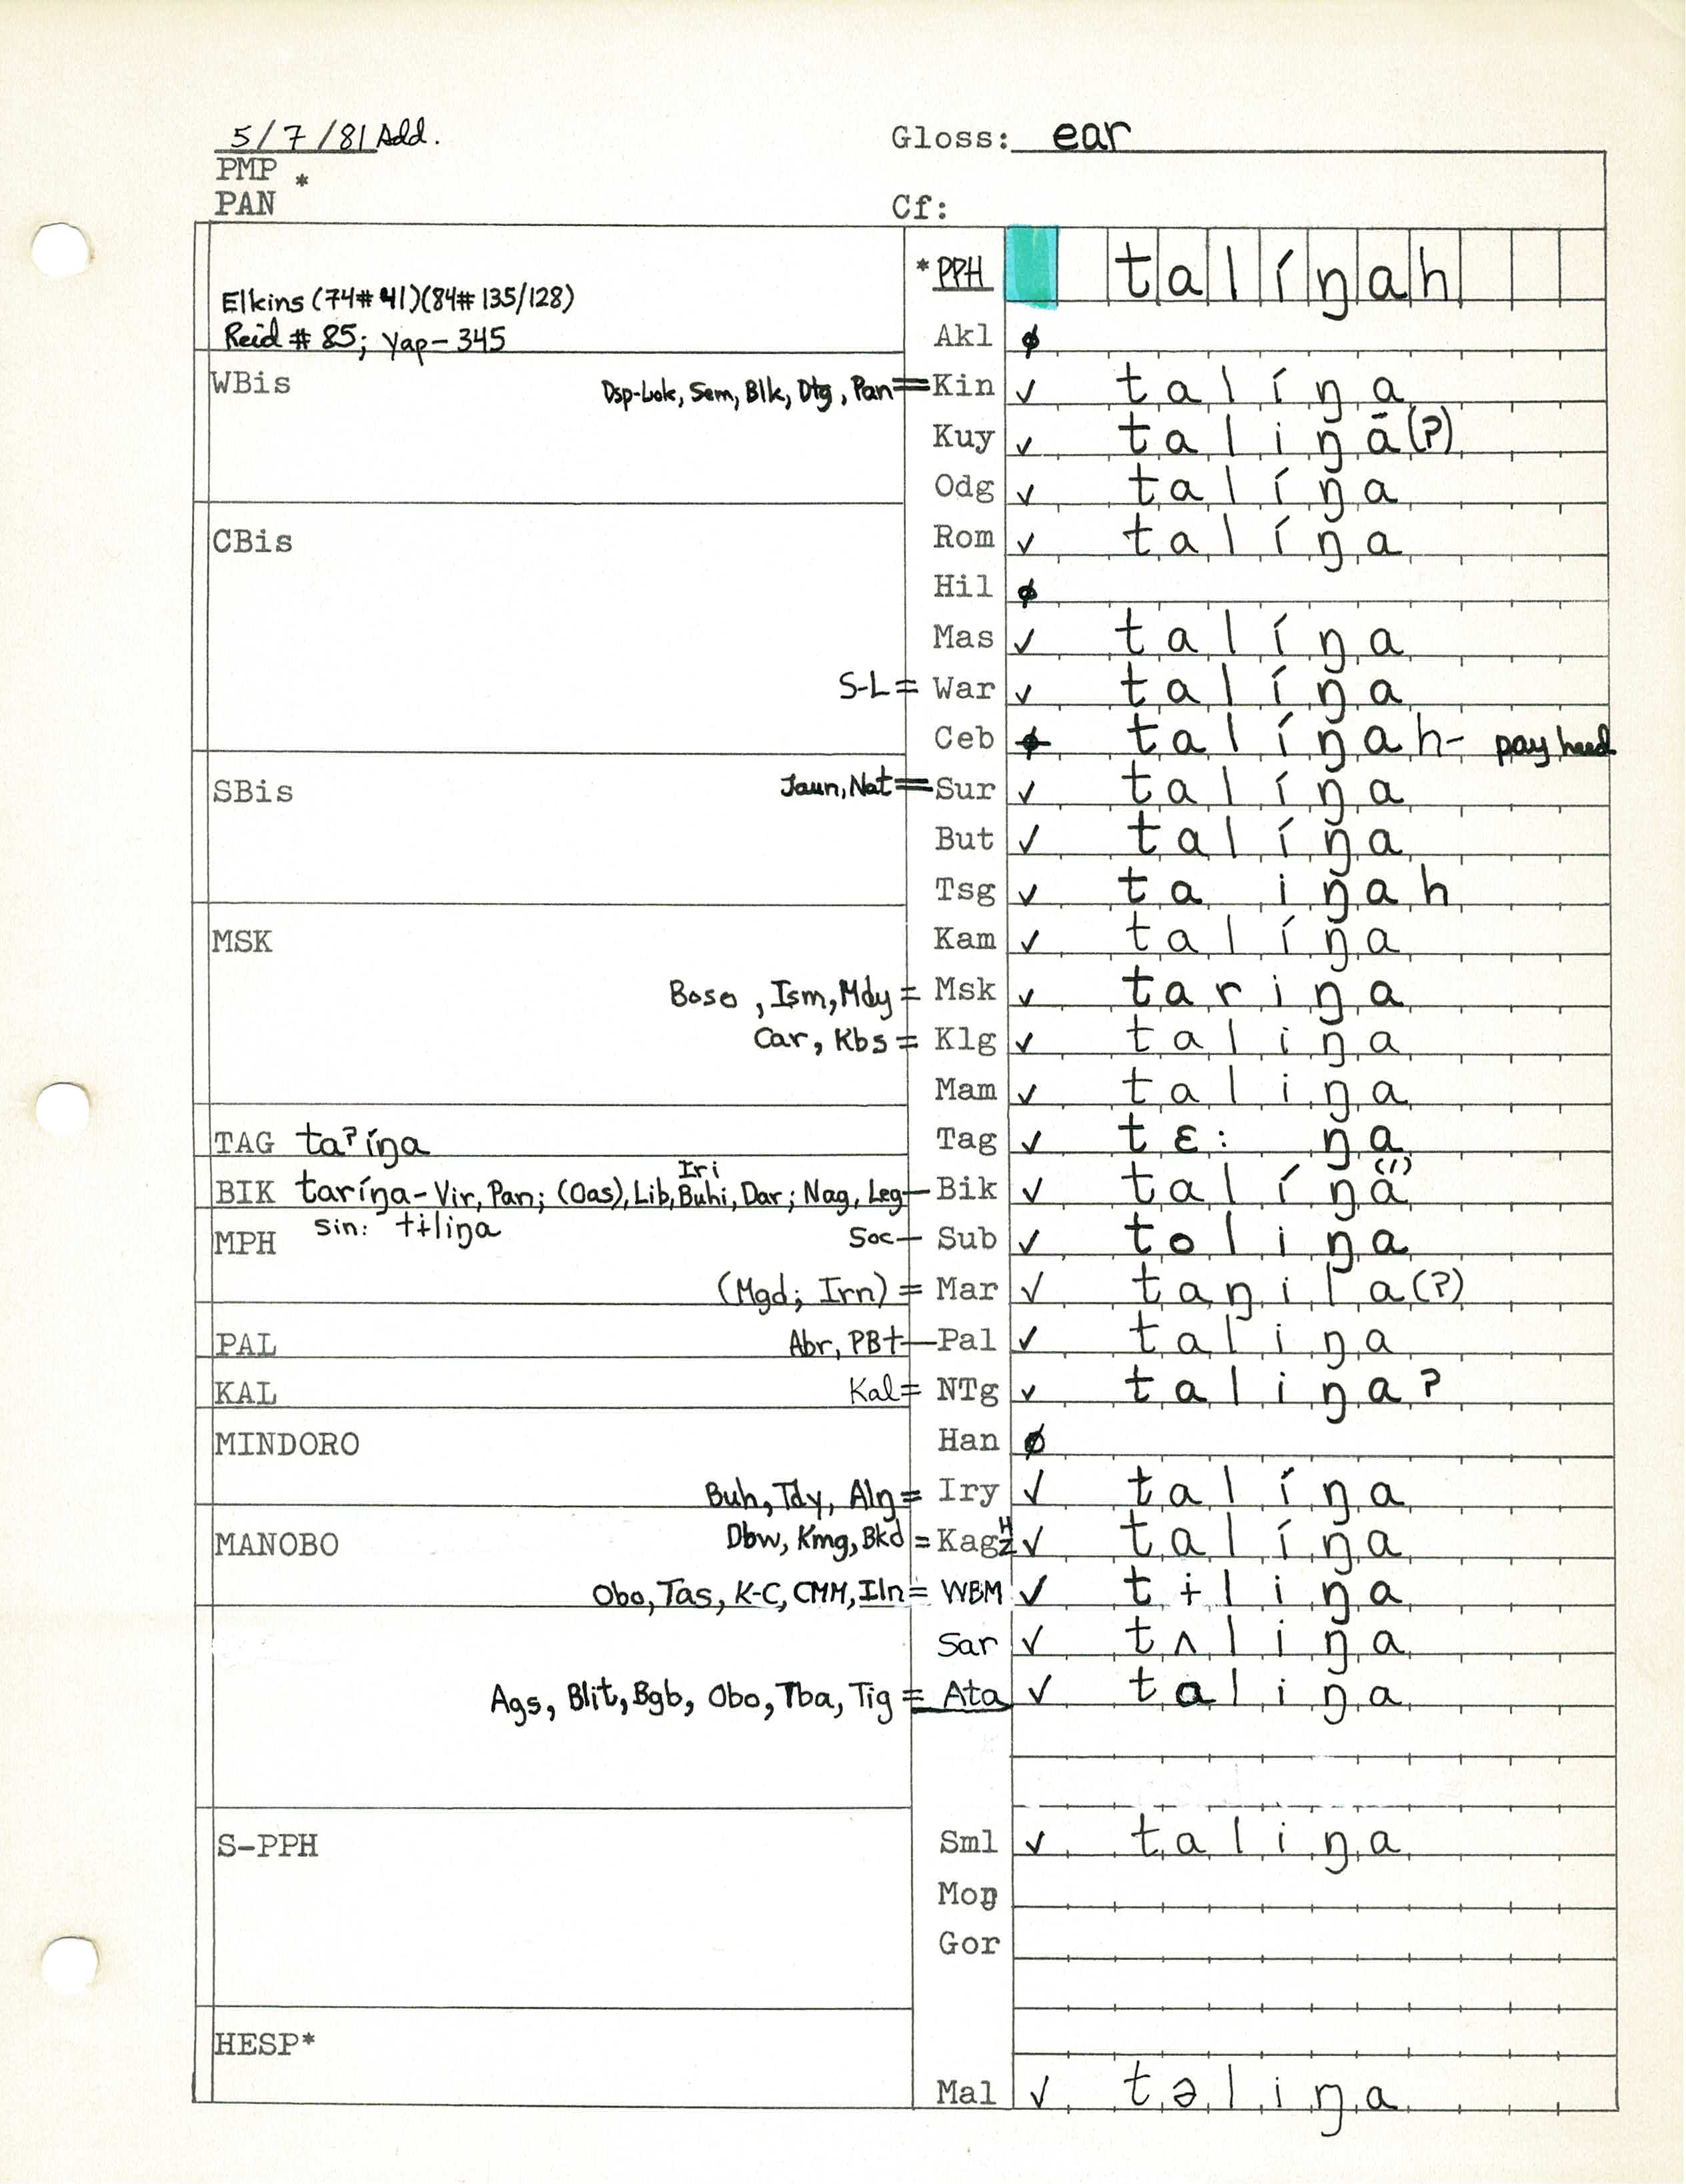 5/7/81 Add. Gloss: ear
PMP *
PAN Cf:
*PPH talíŋah
Elkins (74# 41)(84# 135/128)
Reid # 85; Yap-345 Akl ∅
WBis Dsp-Lok, Sem, Blk, Dtg, Pan = Kin ✓ talíŋa
Kuy ✓ taliŋā(?)
Odg ✓ talíŋa
CBis Rom ✓ talíŋa
Hil ∅
Mas ✓ talíŋa
S-L = War ✓ talíŋa
Ceb talíŋah- pay heed
SBis Jaun, Nat = Sur ✓ talíŋa
But ✓ talíŋa
Tsg ✓ ta iŋah
MSK Kam ✓ talíŋa
Boso, Ism, Mdy = Msk ✓ tariŋa
Car, Kbs = Klg ✓ taliŋa
Mam ✓ taliŋa
TAG taʔíŋa Tag ✓ tɛ: ŋa
Iri
BIK taríŋa - Vir, Pan; (Oas), Lib, Buhi, Dar; Nag, Leg - Bik ✓ talíŋa(´)
sin: tɨliŋa
MPH Soc - Sub ✓ toliŋa
(Mgd; Irn) = Mar ✓ taŋila(?)
PAL Abr, PBt - Pal ✓ taliŋa
KAL Kal = NTg ✓ taliŋaʔ
MINDORO Han ∅
Buh, Tdy, Alŋ = Iry ✓ talíŋa
MANOBO Dbw, Kmg, Bkd = Kag ✓ talíŋa
Obo, Tas, K-C, CMM, Iln = WBM ✓ tɨliŋa
Sar ✓ tʌliŋa
Ags, Blit, Bgb, Obo, Tba, Tig = Ata ✓ taliŋa
S-PPH Sml ✓ taliŋa
Moŋ
Gor
HESP*
Mal ✓ təliŋa